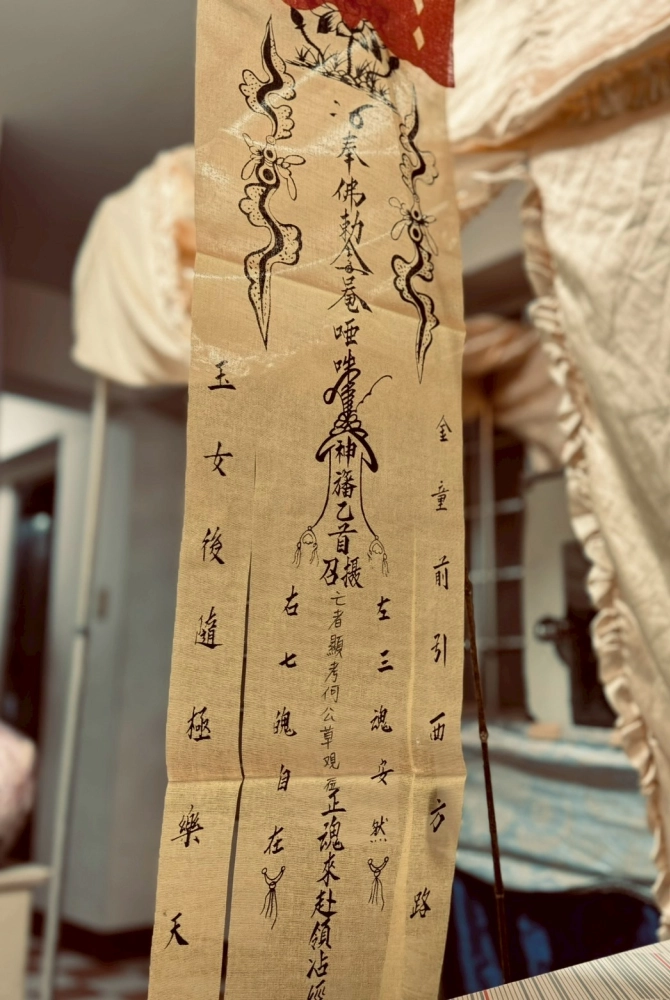 金童前引西方路
左三魂安然
奉佛勅令菴哑吽神旛乙首摄召亡者顯考何公草观正魂來赴領沾
右七魄自在
玉女後隨極樂天